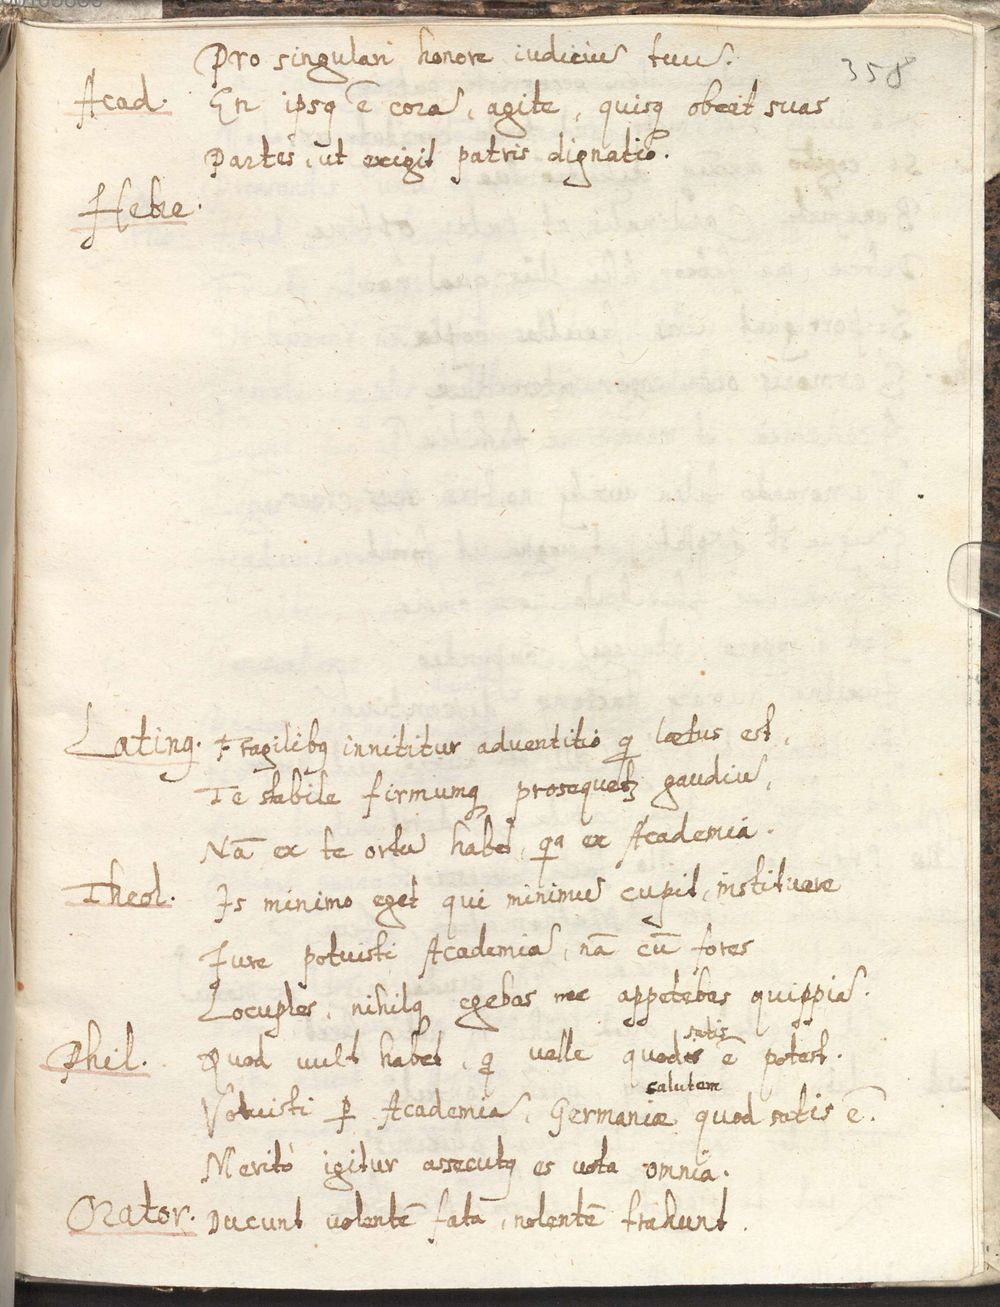 Pro singulari honore iudiciũ tuũ.
358
Acad. En ipsq ẽ corã, agite, quisq obeat suas
Partes, ut exigit patris dignatiõ.
Hebre.
Latinq. Fragilibq innititur adventitio q lætus est,
Te stabile firmumq prosequetʒ gaudiũ,
Nã ex te ortũ habet, qa ex Academiã.
Theol. Is minimo eget qui minimũ cupit, instituere
Jure potuisti Academiã, nã cũ fores
Locuples, nihilq egebas nec appetebas quippiã.
Phil. Quod vult habet, q velle quod satis ẽ potest.
Voluisti ꝑ Academiã, Germaniæ salutem quod satis ẽ.
Meritò igitur assecutq es vota omnia.
Orator. Ducunt volentẽ fata, nolentẽ trahunt.